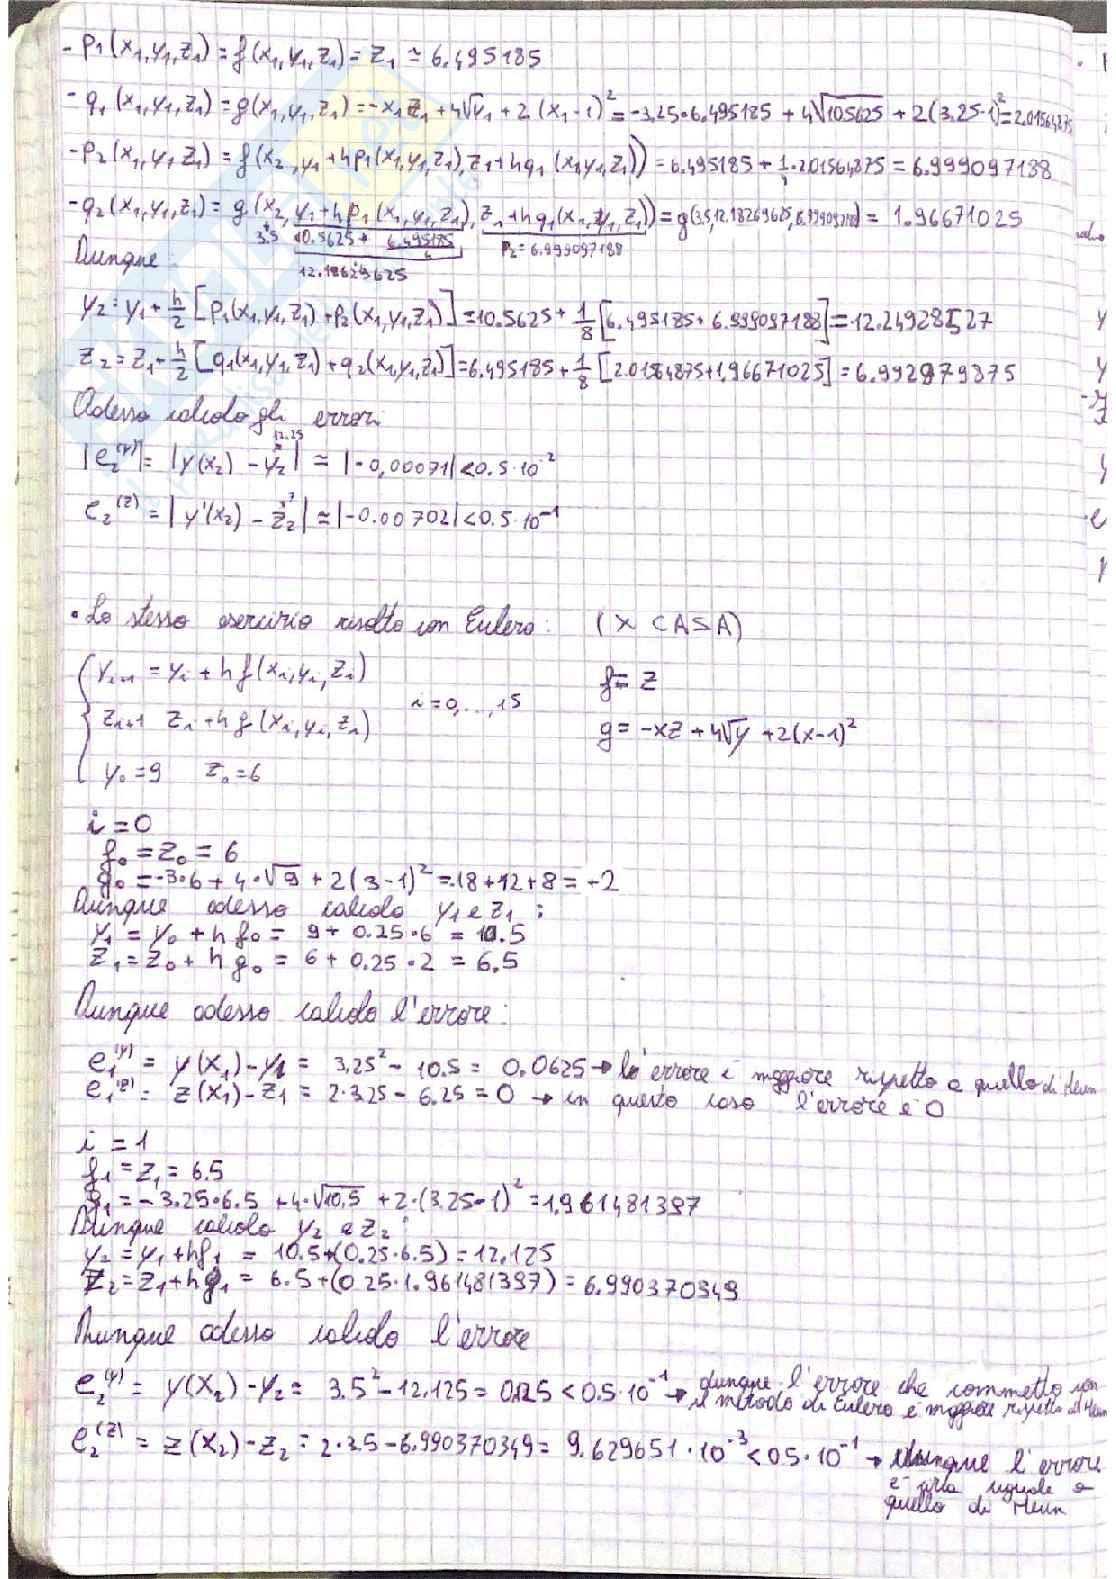 - p₁(x₁,y₁,z₁) = f(x₁,y₁,z₁) = z₁ ≃ 6.495185
- q₁(x₁,y₁,z₁) = g(x₁,y₁,z₁) = -x₁z₁ + 4√y₁ + 2(x₁-1)² = -3.25·6.495185 + 4√10.5625 + 2(3.25-1)² = 2.01564875
- p₂(x₁,y₁,z₁) = f(x₂,y₁+hp₁(x₁,y₁,z₁),z₁+hq₁(x₁,y₁,z₁)) = 6.495185 + 1/4·2.01564875 = 6.999097188
- q₂(x₁,y₁,z₁) = g(x₂,y₁+hp₁(x₁,y₁,z₁),z₁+hq₁(x₁,y₁,z₁)) = g(3.5,12.18629625,6.999097188) = 1.96671025
3.5 10.5625 + 6.495185/4 p₂=6.999097188
12.18629625
Dunque:
y₂ = y₁ + h/2 [p₁(x₁,y₁,z₁)+p₂(x₁,y₁,z₁)] = 10.5625 + 1/8 [6.495185 + 6.999097188] = 12.24928527
z₂ = z₁ - h/2 [q₁(x₁,y₁,z₁) + q₂(x₁,y₁,z₁)] = 6.495185 + 1/8 [2.0184875+1.96671025] = 6.992979875
Adesso calcolo gli errori
12.25
|e₂⁽ʸ⁾| = |y(x₂) - y₂| ≃ |-0,00071| < 0.5·10⁻²
7
e₂⁽ᶻ⁾ = |y'(x₂) - z₂| ≃ |-0.00702| < 0.5·10⁻¹
• Lo stesso esercizio risolto con Eulero: (X CASA)
yᵢ₊₁ = yᵢ + hf(xᵢ,yᵢ,zᵢ) f = z
zᵢ₊₁ zᵢ + hg(xᵢ,yᵢ,zᵢ) i=0,...,15 g = -xz + 4√y + 2(x-1)²
y₀ = 9 z₀ = 6
i = 0
f₀ = z₀ = 6
g₀ = -3·6 + 4·√9 + 2(3-1)² = -18+12+8 = -2
Dunque adesso calcolo y₁ e z₁:
y₁ = y₀ + hf₀ = 9 + 0.25·6 = 10.5
z₁ = z₀ + hg₀ = 6 + 0.25·2 = 6.5
Dunque adesso calcolo l'errore:
e₁⁽ʸ⁾ = y(x₁) - y₁ = 3,25² - 10.5 = 0,0625 → l'errore è maggiore rispetto a quello di Heun
e₁⁽ᶻ⁾ = z(x₁) - z₁ = 2·3.25 - 6.25 = 0 → in questo caso l'errore è 0
i = 1
f₁ = z₁ = 6.5
g₁ = -3.25·6.5 + 4·√10,5 + 2·(3.25-1)² = 1,961481397
Dunque calcolo y₂ e z₂:
y₂ = y₁+hf₁ = 10.5+(0.25·6.5) = 12.125
z₂ = z₁+hg₁ = 6.5+(0.25·1.961481397) = 6.990370349
Dunque adesso calcolo l'errore
e₂⁽ʸ⁾ = y(x₂) - y₂ = 3.5² - 12.125 = 0.125 < 0.5·10⁻¹ → dunque l'errore che commetto con
il metodo di Eulero è maggiore rispetto ad Heun
e₂⁽ᶻ⁾ = z(x₂) - z₂ = 2·3.5 - 6.990370349 = 9.629651·10⁻³ < 0.5·10⁻¹ → dunque l'errore
è uguale a
quello di Heun